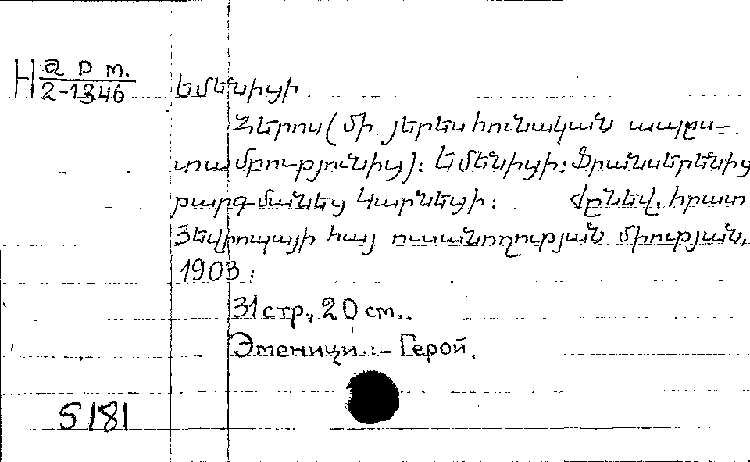 H арт.
2-1346
Եմենիցի
Հերոս (մի յերես հունական ապըս-
տամբությունից): Եմենիցի: Ֆրանսերենից
թարգմանեց Կարնեցի: Ժընեվ, հրատ
Յեվրոպայի հայ ուսանողության միության,
1903:
31 стр, 20 cm..
Эменици. – Герой.
5181